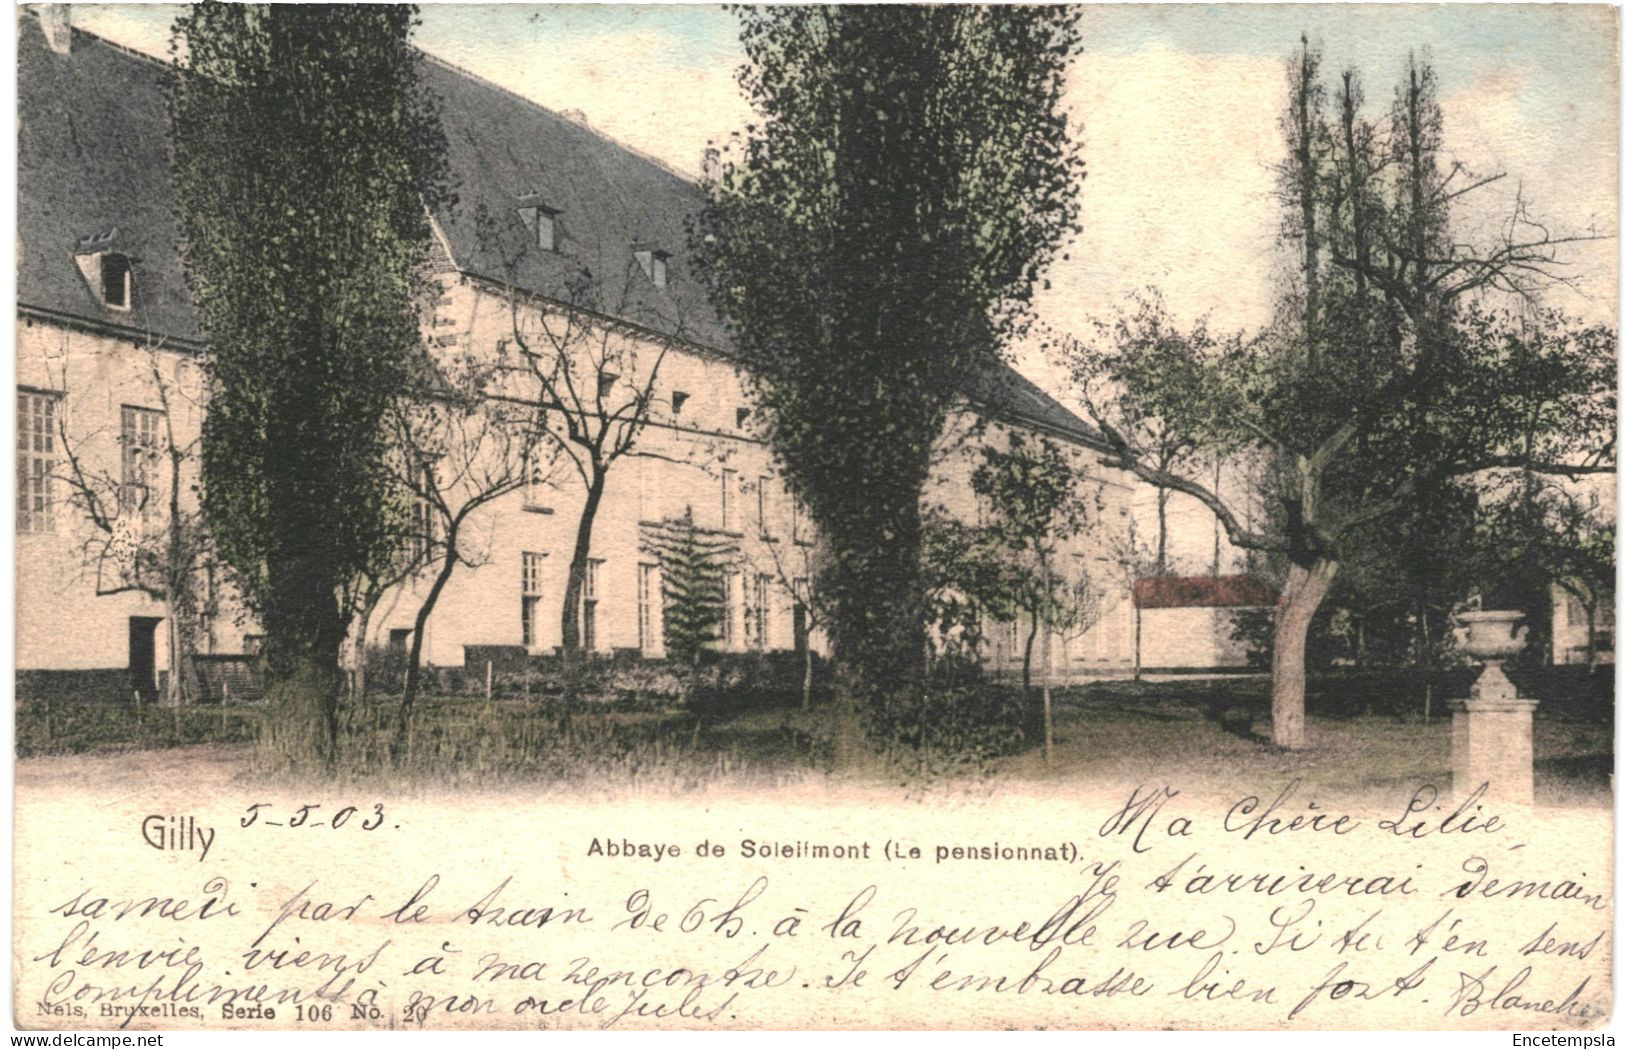 Gilly 5-5-03.
Abbaye de Soleilmont (Le pensionnat).
Ma Chère Lilie,
Je t'arriverai demain
samedi par le train de 6h. à la nouvelle rue. Si tu t'en sens
l'envie viens à ma rencontre. Je t'embrasse bien fort. Blanche
Compliments à mon oncle Jules.
Nels, Bruxelles, Serie 106 No. 20
Encetempsla